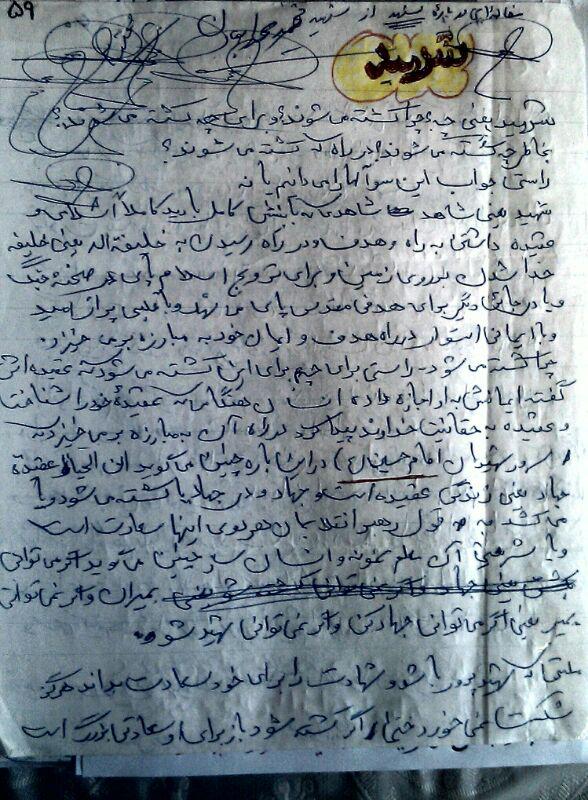 ۵۹
مقاله‌ای درباره شهید از شهید محمد
شهید
شهید یعنی چه؟ چرا کشته می‌شوند؟ و برای چه کشته می‌شوند؟
بخاطر چه کشته می‌شوند؟ در راه که کشته می‌شوند؟
راستی جواب این سوالها را می‌دانیم یا نه
شهید یعنی شاهد شاهدی که با بینش کامل با دید کاملاً اسلامی و
عقیده داشتن به راه و هدف و در راه رسیدن به خلیفة الله یعنی خلیفه
خدا شدن بر روی زمین و برای ترویج اسلام پای در صحنه جنگ
و یا در جای دیگر برای هدفی مقدس پای می‌نهد و با قلبی پر از امید
و با ایمانی استوار در راه هدف و ایمان خود به مبارزه بر می‌خیزد.
چرا کشته می‌شود راستی برای چه برای این کشته می‌شود که عقیده‌اش
گفته ایمانش به او اجازه داده انسان هنگامی که عقیدهٔ خود را شناخت
و عقیده به حقانیت خداوند پیدا کرد در راه آن به مبارزه بر می‌خیزد که
سرور شهیدان امام حسین (ع) در این باره چنین می‌گوید ان الحیاة عقیدة
جهاد یعنی زندگی عقیده است و جهاد و در جهاد یا کشته می‌شود و یا
می‌کشد که به قول رهبر انقلابمان هر دوی اینها سعادت است
و یا شش ماهه آن علم نمونه و انسان ساز چنین می‌گوید اگر می‌توانی
بمیران و اگر نمی‌توانی
بمیر یعنی اگر می‌توانی جهاد کن و اگر نمی‌توانی شهید شو
ملتی که شهید پرور باشد و شهادت را برای خود سعادت بداند هرگز
شکست نمی‌خورد حتی اگر کشته شود باز برای او سعادتی بزرگ است